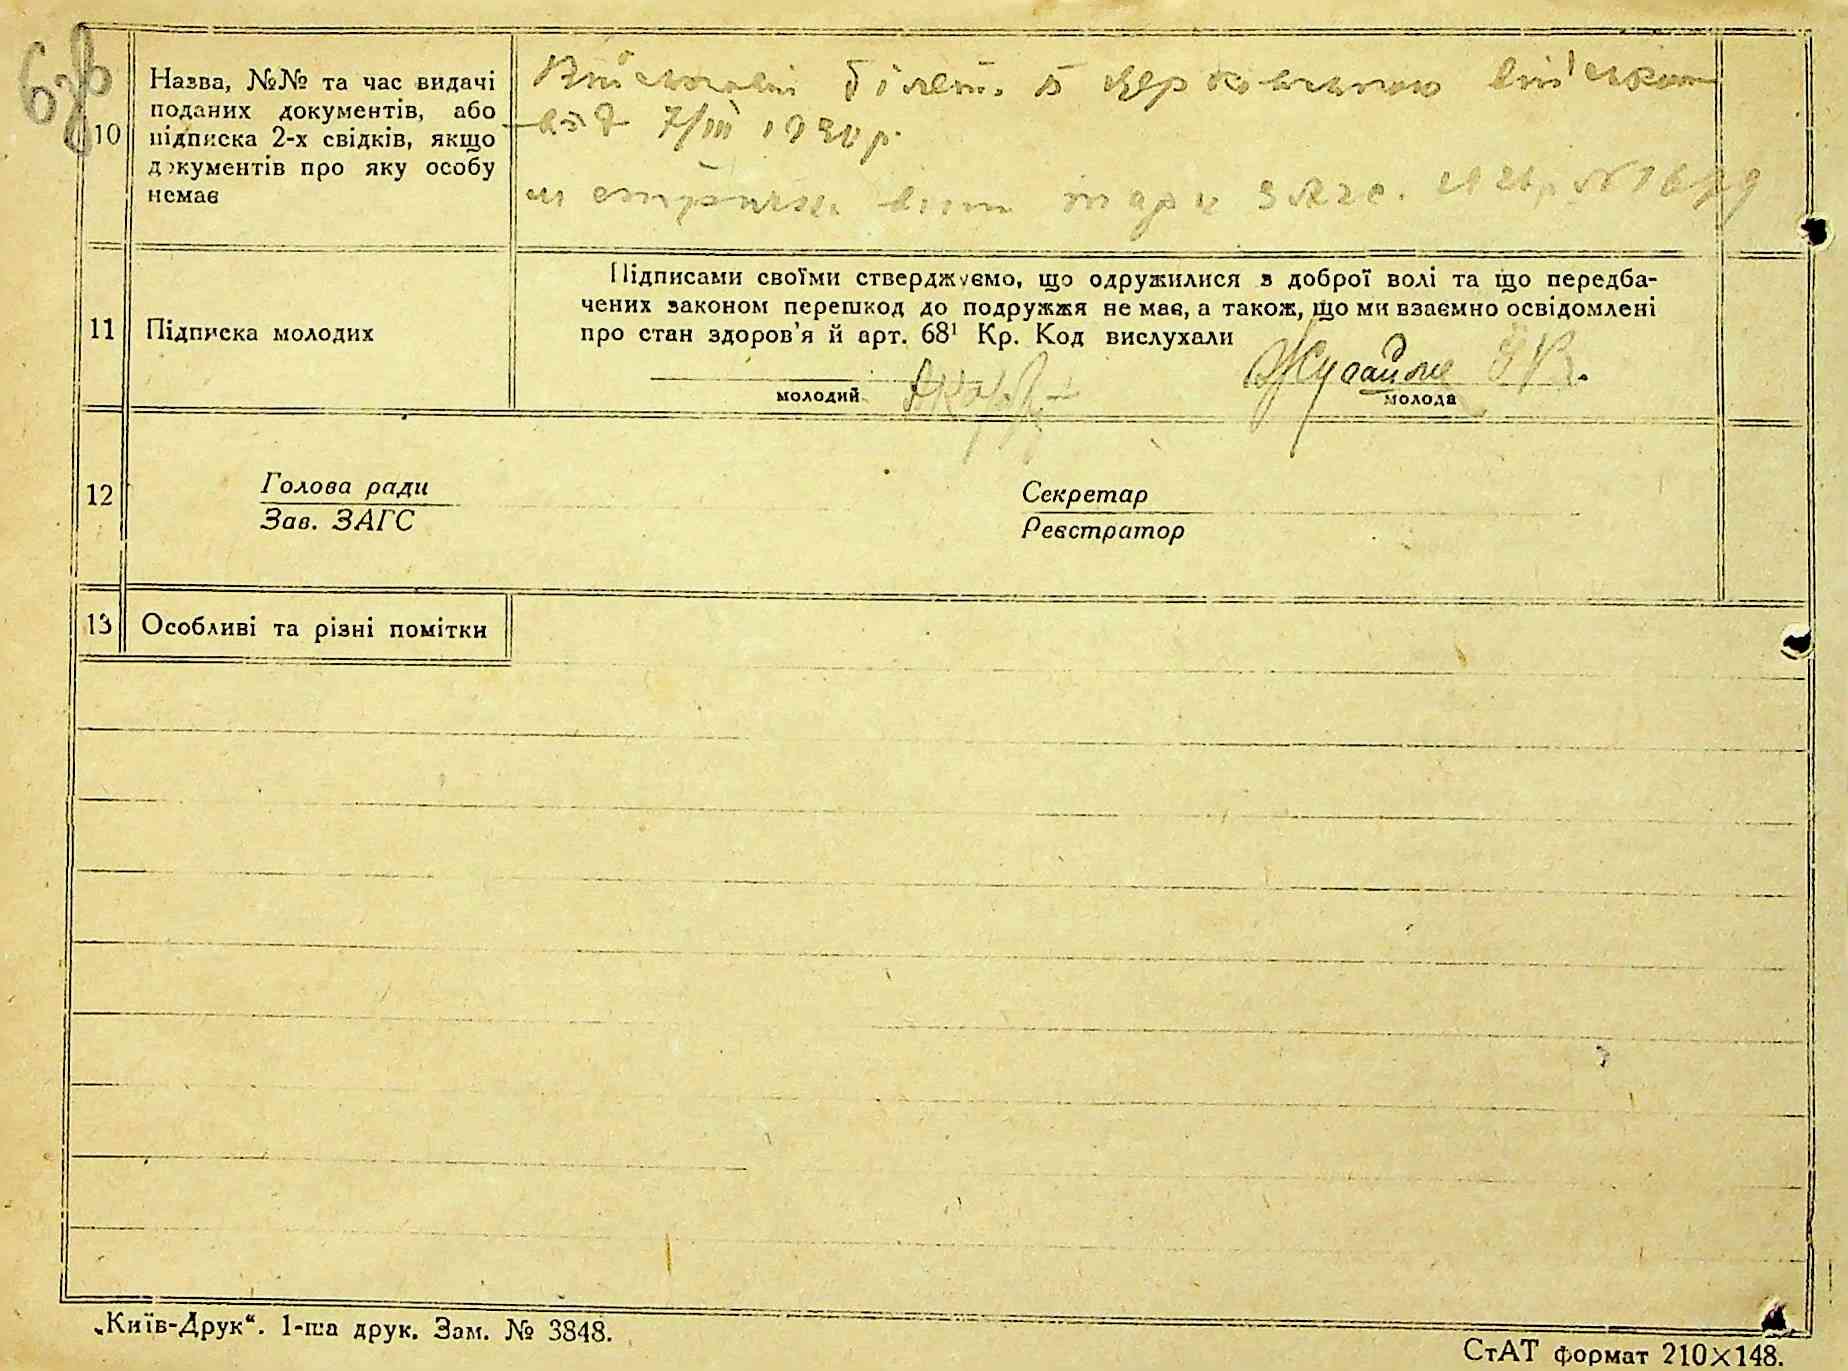 10
Назва, №№ та час видачі
поданих документів, або
підписка 2-х свідків, якщо
документів про яку особу
немає
білет.
від 7/III 1930 р.
11
Підписка молодих
Підписами своїми стверджуємо, що одружилися з доброї волі та що передба-
чених законом перешкод до подружжя не має, а також, що ми взаємно освідомлені
про стан здоров'я й арт. 68¹ Кр. Код вислухали
молодий
молода
12
Голова ради
Зав. ЗАГС
Секретар
Реєстратор
13
Особливі та різні помітки
„Київ-Друк“. 1-ша друк. Зам. № 3848.
СтАТ формат 210×148.